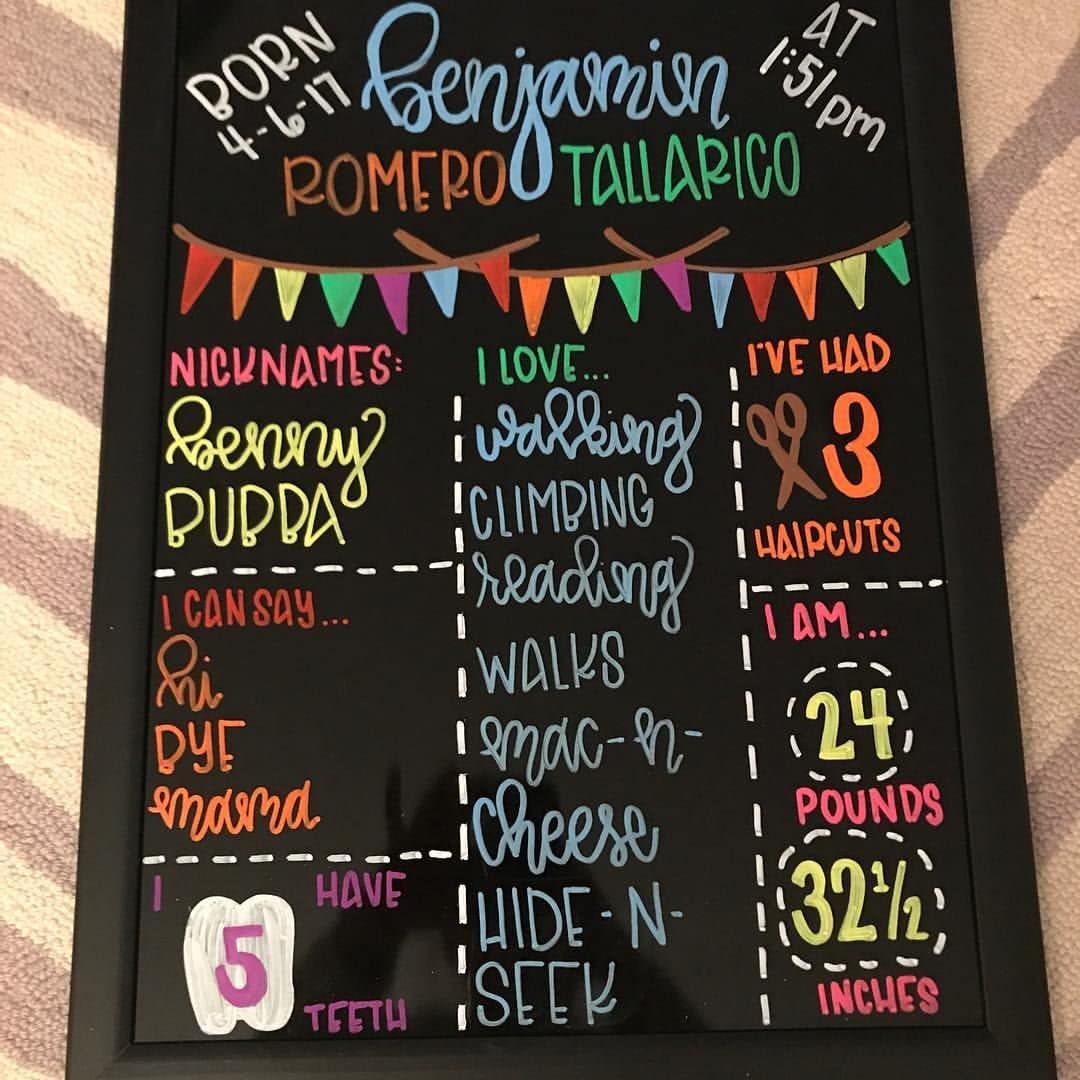 BORN
4-6-17
benjamin
AT
1:51pm
ROMERO TALLARICO
NICKNAMES:
benny
BUBBA
I CAN SAY...
hi
BYE
mama
I HAVE
5
TEETH
I LOVE...
walking
CLIMBING
reading
WALKS
mac-n-
cheese
HIDE-N-
SEEK
I'VE HAD
3
HAIRCUTS
I AM...
24
POUNDS
32 1/2
INCHES